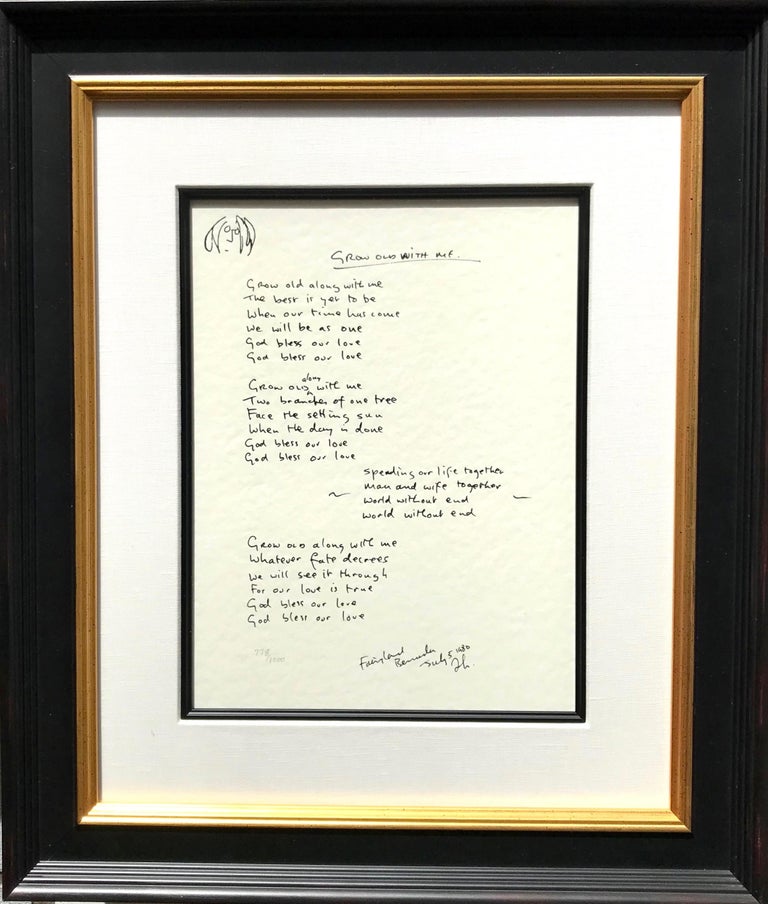 GROW OLD WITH ME.
Grow old along with me
The best is yet to be
When our time has come
We will be as one
God bless our love
God bless our love
Grow OLD along with me
Two branches of one tree
Face the setting sun
When the day is done
God bless our love
God bless our love
spending our life together
man and wife together
world without end
world without end
Grow OLD along with me
Whatever fate decrees
We will see it through
For our love is true
God bless our love
God bless our love
778/1000
Fairyland
Bermuda
July 5 1980